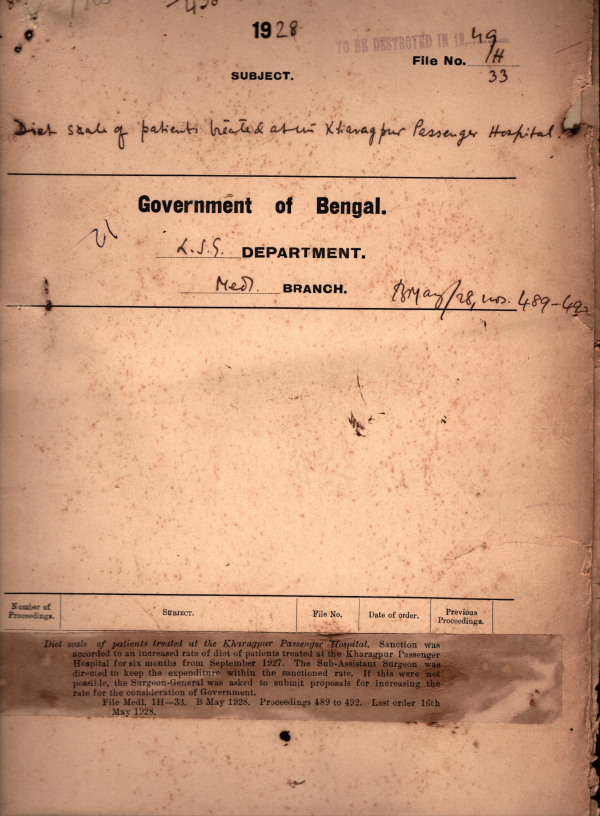 1928
TO BE DESTROYED IN 19
File No. 49
1H
33
SUBJECT.
Diet scale of patients treated at the Kharagpur Passenger Hospital.
Government of Bengal.
L.S.G. DEPARTMENT.
Medl. BRANCH.
B May/28, nos. 489-492
Number of Proceedings.
SUBJECT.
File No.
Date of order.
Previous Proceedings.
Diet scale of patients treated at the Kharagpur Passenger Hospital. Sanction was
accorded to an increased rate of diet of patients treated at the Kharagpur Passenger
Hospital for six months from September 1927. The Sub-Assistant Surgeon was
directed to keep the expenditure within the sanctioned rate. If this were not
possible, the Surgeon-General was asked to submit proposals for increasing the
rate for the consideration of Government.
File Medl. 1H—33. B May 1928. Proceedings 489 to 492. Last order 16th
May 1928.